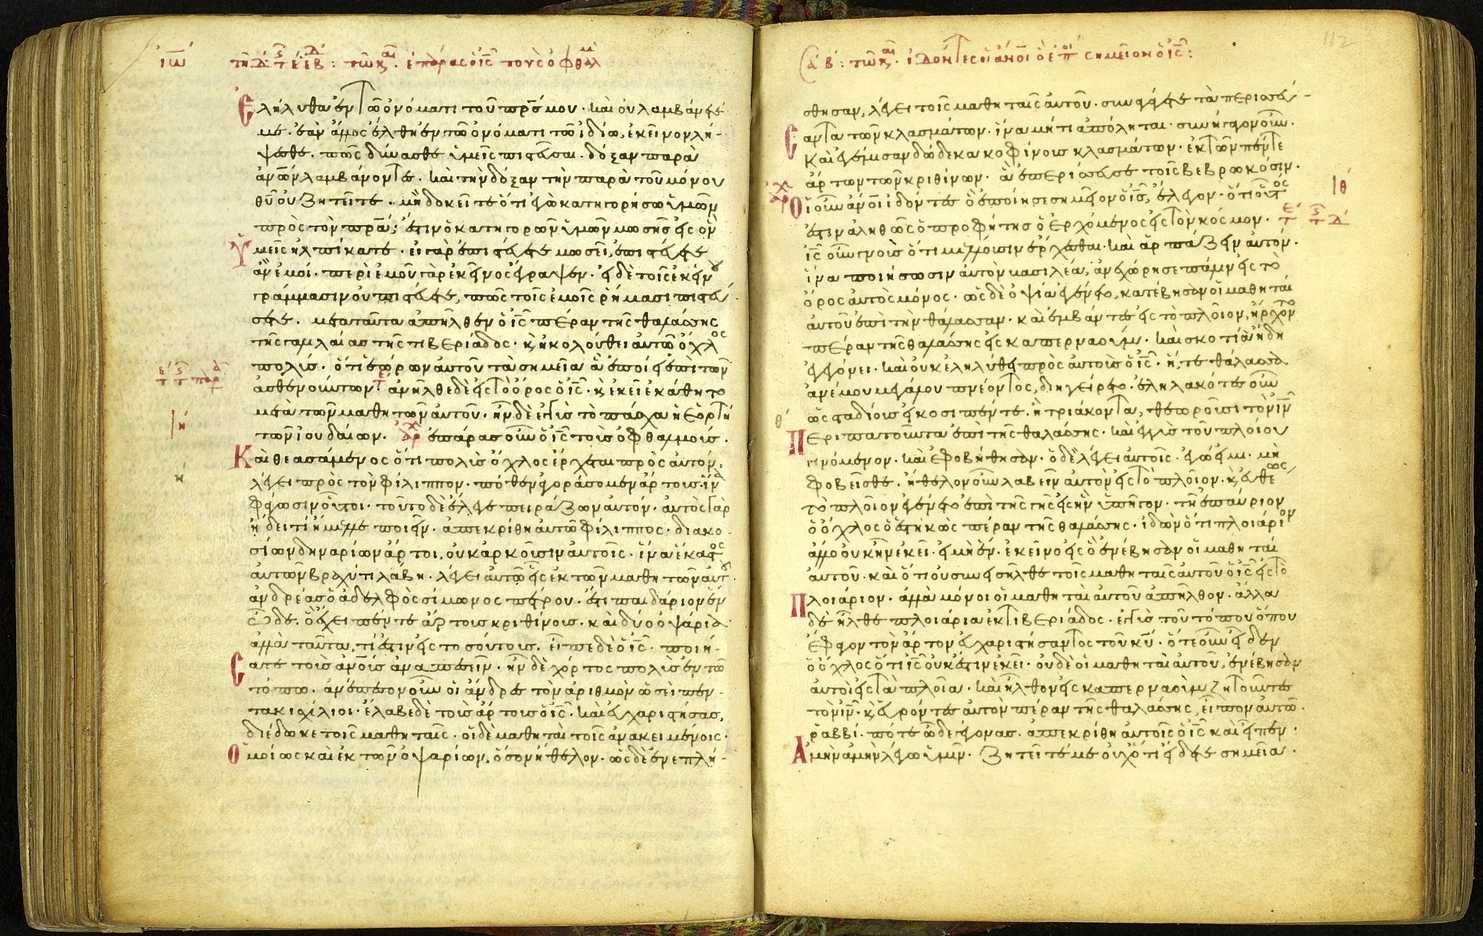 ἰω
ἐπάρας ὁ ι̅ς̅ τοὺς ὀφθαλ
Ἐλήλυθα ἐν τῶ ὀνόματι τοῦ π̅ρ̅ς̅ μου · καὶ οὐ λαμβάνετέ
με · ἐὰν ἄλλος ἔλθη ἐν τῶ ὀνόματι τῶ ἰδίω, ἐκεῖνον λή-
ψεσθε · πῶς δύνασθε ὑμεῖς πιστεῦσαι · δόξαν παρὰ
ἀν̅ω̅ν λαμβάνοντες · καὶ τὴν δόξαν τὴν παρὰ τοῦ μόνου
θ̅υ̅ οὐ ζητεῖτε · μὴ δοκεῖτε ὅτι ἐγὼ κατηγορήσω ὑμῶν
πρὸς τὸν π̅ρ̅α̅ · ἔστιν ὁ κατηγορῶν ὑμῶν μωσῆς εἰς ὃν
Ὑμεῖς ἠλπίκατε · εἰ γὰρ ἐπιστεύετε μωσεῖ, ἐπιστεύετε
ἂν ἐμοί · περὶ ἐμοῦ γὰρ ἐκεῖνος ἔγραψεν · εἰ δὲ τοῖς ἐκείνου
γράμμασιν οὐ πιστεύετε, πῶς τοῖς ἐμοῖς ῥήμασι πιστεύ-
σετε · μετὰ ταῦτα ἀπῆλθεν ὁ ι̅ς̅ πέραν τῆς θαλάσσης
τῆς γαλιλαίας τῆς τιβεριάδος · κ ἠκολούθει αὐτῶ ὄχλος
πολύς · ὅτι ἑώρων αὐτοῦ τὰ σημεῖα ἃ ἐποίει ἐπὶ τῶν
ἀσθενούντων ἀνῆλθε δὲ εἰς τὸ ὄρος ὁ ι̅ς̅ · κ ἐκεῖ ἐκάθητο
μετὰ τῶν μαθητῶν αὐτοῦ · ἦν δὲ ἐγγὺς τὸ πάσχα ἡ ἑορτὴ
τῶν ἰουδαίων · ἐπάρας οὖν ὁ ι̅ς̅ τοὺς ὀφθαλμούς ·
Καὶ θεασάμενος ὅτι πολὺς ὄχλος ἔρχεται πρὸς αὐτόν,
λέγει πρὸς τὸν φίλιππον · πόθεν ἀγοράσομεν ἄρτους ἵνα
φάγωσιν οὗτοι · τοῦτο δὲ ἔλεγε πειράζων αὐτόν · αὐτὸς γὰρ
ἤδει τί ἤμελλε ποιεῖν · ἀπεκρίθη αὐτῶ φίλιππος · διακο-
σίων δηναρίων ἄρτοι, οὐκ ἀρκοῦσιν αὐτοῖς · ἵνα ἕκαστος
αὐτῶν βραχύ τι λάβη · λέγει αὐτῶ εἷς ἐκ τῶν μαθητῶν αὐτοῦ ·
ἀνδρέας ὁ ἀδελφὸς σίμωνος πέτρου · ἔστι παιδάριον ἓν
ὧδε · ὃ ἔχει πέντε ἄρτους κριθίνους · καὶ δύο ὀψάρια
ἀλλὰ ταῦτα, τί ἐστιν εἰς τοσούτους · εἶπε δὲ ὁ ι̅ς̅ · ποιή-
σατε τοὺς ἀν̅ο̅υ̅ς ἀναπεσεῖν · ἦν δὲ χόρτος πολὺς ἐν τῶ
τόπω · ἀνέπεσον οὖν οἱ ἄνδρες τὸν ἀριθμὸν ὡσεὶ πεν-
τακισχίλιοι · ἔλαβε δὲ τοὺς ἄρτους ὁ ι̅ς̅ · καὶ εὐχαριστήσας,
διέδωκε τοῖς μαθηταῖς · οἱ δὲ μαθηταὶ τοῖς ἀνακειμένοις ·
Ὁμοίως καὶ ἐκ τῶν ὀψαρίων, ὅσον ἤθελον · ὡς δὲ ἐνεπλή-
ἰδόντες οἱ ἄν̅ο̅ι ὃ ἐπ σημεῖον ὁ ι̅ς̅ :
112
σθησαν, λέγει τοῖς μαθηταῖς αὐτοῦ · συναγάγετε τὰ περισσεύ-
σαντα τῶν κλασμάτων · ἵνα μή τι ἀπόληται · συνήγαγον οὖν ·
Καὶ ἐγέμισαν δώδεκα κοφίνους κλασμάτων · ἐκ τῶν πέντε
ἄρτων τῶν κριθίνων · ἃ ἐπερίσσευσε τοῖς βεβρωκόσιν ·
Οἱ οὖν ἄν̅ο̅ι ἰδόντες ὃ ἐποίησε σημεῖον ὁ ι̅ς̅, ἔλεγον · ὅτι οὗτος
ἐστιν ἀληθῶς ὁ προφήτης ὁ ἐρχόμενος εἰς τὸν κόσμον ·
ι̅ς̅ οὖν γνοὺς ὅτι μέλλουσιν ἔρχεσθαι καὶ ἁρπάζειν αὐτόν ·
ἵνα ποιήσωσιν αὐτὸν βασιλέα, ἀνεχώρησε πάλιν εἰς τὸ
ὄρος αὐτὸς μόνος · ὡς δὲ ὀψία ἐγένετο, κατέβησαν οἱ μαθηταὶ
αὐτοῦ ἐπὶ τὴν θάλασσαν · καὶ ἐμβάντες εἰς τὸ πλοῖον, ἤρχοντο
πέραν τῆς θαλάσσης εἰς καπερναούμ · καὶ σκοτία ἤδη
ἐγεγόνει · καὶ οὐκ ἐληλύθει πρὸς αὐτοὺς ὁ ι̅ς̅ · ἥ τε θάλασσα
ἀνέμου μεγάλου πνέοντος, διηγείρετο · ἐληλακότες οὖν
ὡς σταδίους εἴκοσι πέντε · ἢ τριάκοντα, θεωροῦσι τὸν ι̅ν̅
Περιπατοῦντα ἐπὶ τῆς θαλάσσης · καὶ ἐγγὺς τοῦ πλοίου
γινόμενον · καὶ ἐφοβήθησαν · ὁ δὲ λέγει αὐτοῖς · ἐγώ εἰμι · μὴ
φοβεῖσθε · ἤθελον οὖν λαβεῖν αὐτὸν εἰς τὸ πλοῖον · κ εὐθέως
τὸ πλοῖον ἐγένετο ἐπὶ τῆς γῆς εἰς ἣν ὑπῆγον · τῆ ἐπαύριον
ὁ ὄχλος ὁ ἑστηκὼς πέραν τῆς θαλάσσης · ἰδὼν ὅτι πλοιάριον
ἄλλο οὐκ ἦν ἐκεῖ · εἰ μὴ ἓν · ἐκεῖνο εἰς ὃ ἐνέβησαν οἱ μαθηταὶ
αὐτοῦ · καὶ ὅτι οὐ συνεισῆλθε τοῖς μαθηταῖς αὐτοῦ ὁ ι̅ς̅ εἰς τὸ
Πλοιάριον · ἀλλὰ μόνοι οἱ μαθηταὶ αὐτοῦ ἀπῆλθον · ἄλλα
δὲ ἦλθε πλοιάρια ἐκ τιβεριάδος · ἐγγὺς τοῦ τόπου ὅπου
ἔφαγον τὸν ἄρτον εὐχαριστήσαντος τοῦ κ̅υ̅ · ὅτε οὖν εἶδεν
ὁ ὄχλος ὅτι ι̅ς̅ οὐκ ἔστιν ἐκεῖ · οὐδὲ οἱ μαθηταὶ αὐτοῦ, ἐνέβησαν
αὐτοὶ εἰς τὰ πλοῖα · καὶ ἦλθον εἰς καπερναοὺμ ζητοῦντες
τὸν ι̅ν̅ · κ εὑρόντες αὐτὸν πέραν τῆς θαλάσσης, εἶπον αὐτῶ ·
ῥαββί · πότε ὧδε γέγονας · ἀπεκρίθη αὐτοῖς ὁ ι̅ς̅ καὶ εἶπεν ·
Ἀμὴν ἀμὴν λέγω ὑμῖν · ζητεῖτέ με οὐχ ὅτι εἴδετε σημεῖα ·